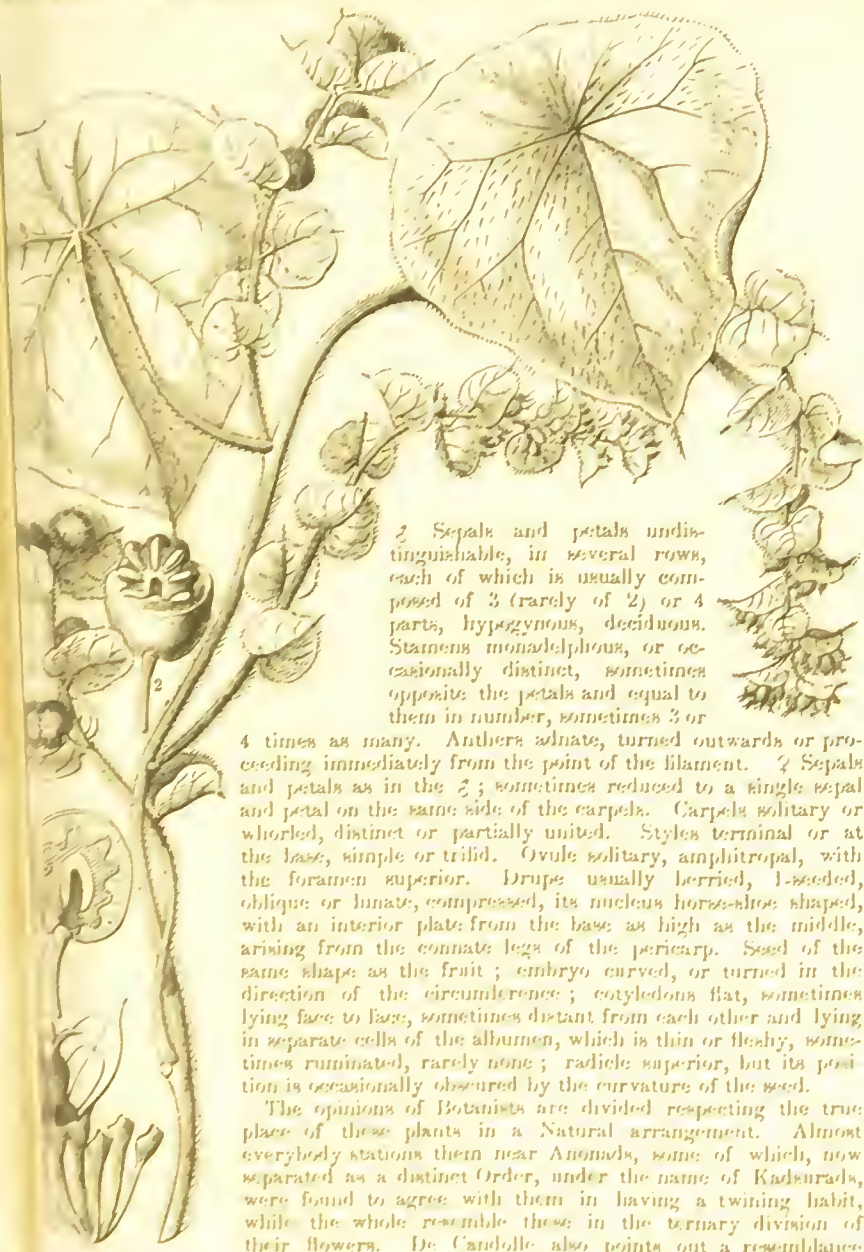 ♂ Sepals and petals undis-
tinguishable, in several rows,
each of which is usually com-
posed of 3 (rarely of 2) or 4
parts, hypogynous, deciduous.
Stamens monadelphous, or oc-
casionally distinct, sometimes
opposite the petals and equal to
them in number, sometimes 3 or
4 times as many. Anthers adnate, turned outwards or pro-
ceeding immediately from the point of the filament. ♀ Sepals
and petals as in the ♂ ; sometimes reduced to a single sepal
and petal on the same side of the carpels. Carpels solitary or
whorled, distinct or partially united. Styles terminal or at
the base, simple or trifid. Ovule solitary, amphitropal, with
the foramen superior. Drupe usually berried, 1-seeded,
oblique or lunate, compressed, its nucleus horse-shoe shaped,
with an interior plate from the base as high as the middle,
arising from the connate legs of the pericarp. Seed of the
same shape as the fruit ; embryo curved, or turned in the
direction of the circumference ; cotyledons flat, sometimes
lying face to face, sometimes distant from each other and lying
in separate cells of the albumen, which is thin or fleshy, some-
times ruminated, rarely none ; radicle superior, but its posi-
tion is occasionally obscured by the curvature of the seed.
The opinions of Botanists are divided respecting the true
place of these plants in a Natural arrangement. Almost
everybody stations them near Anonads, some of which, now
separated as a distinct Order, under the name of Kadsurads,
were found to agree with them in having a twining habit,
while the whole resemble these in the ternary division of
their flowers. De Candolle also points out a resemblance
2